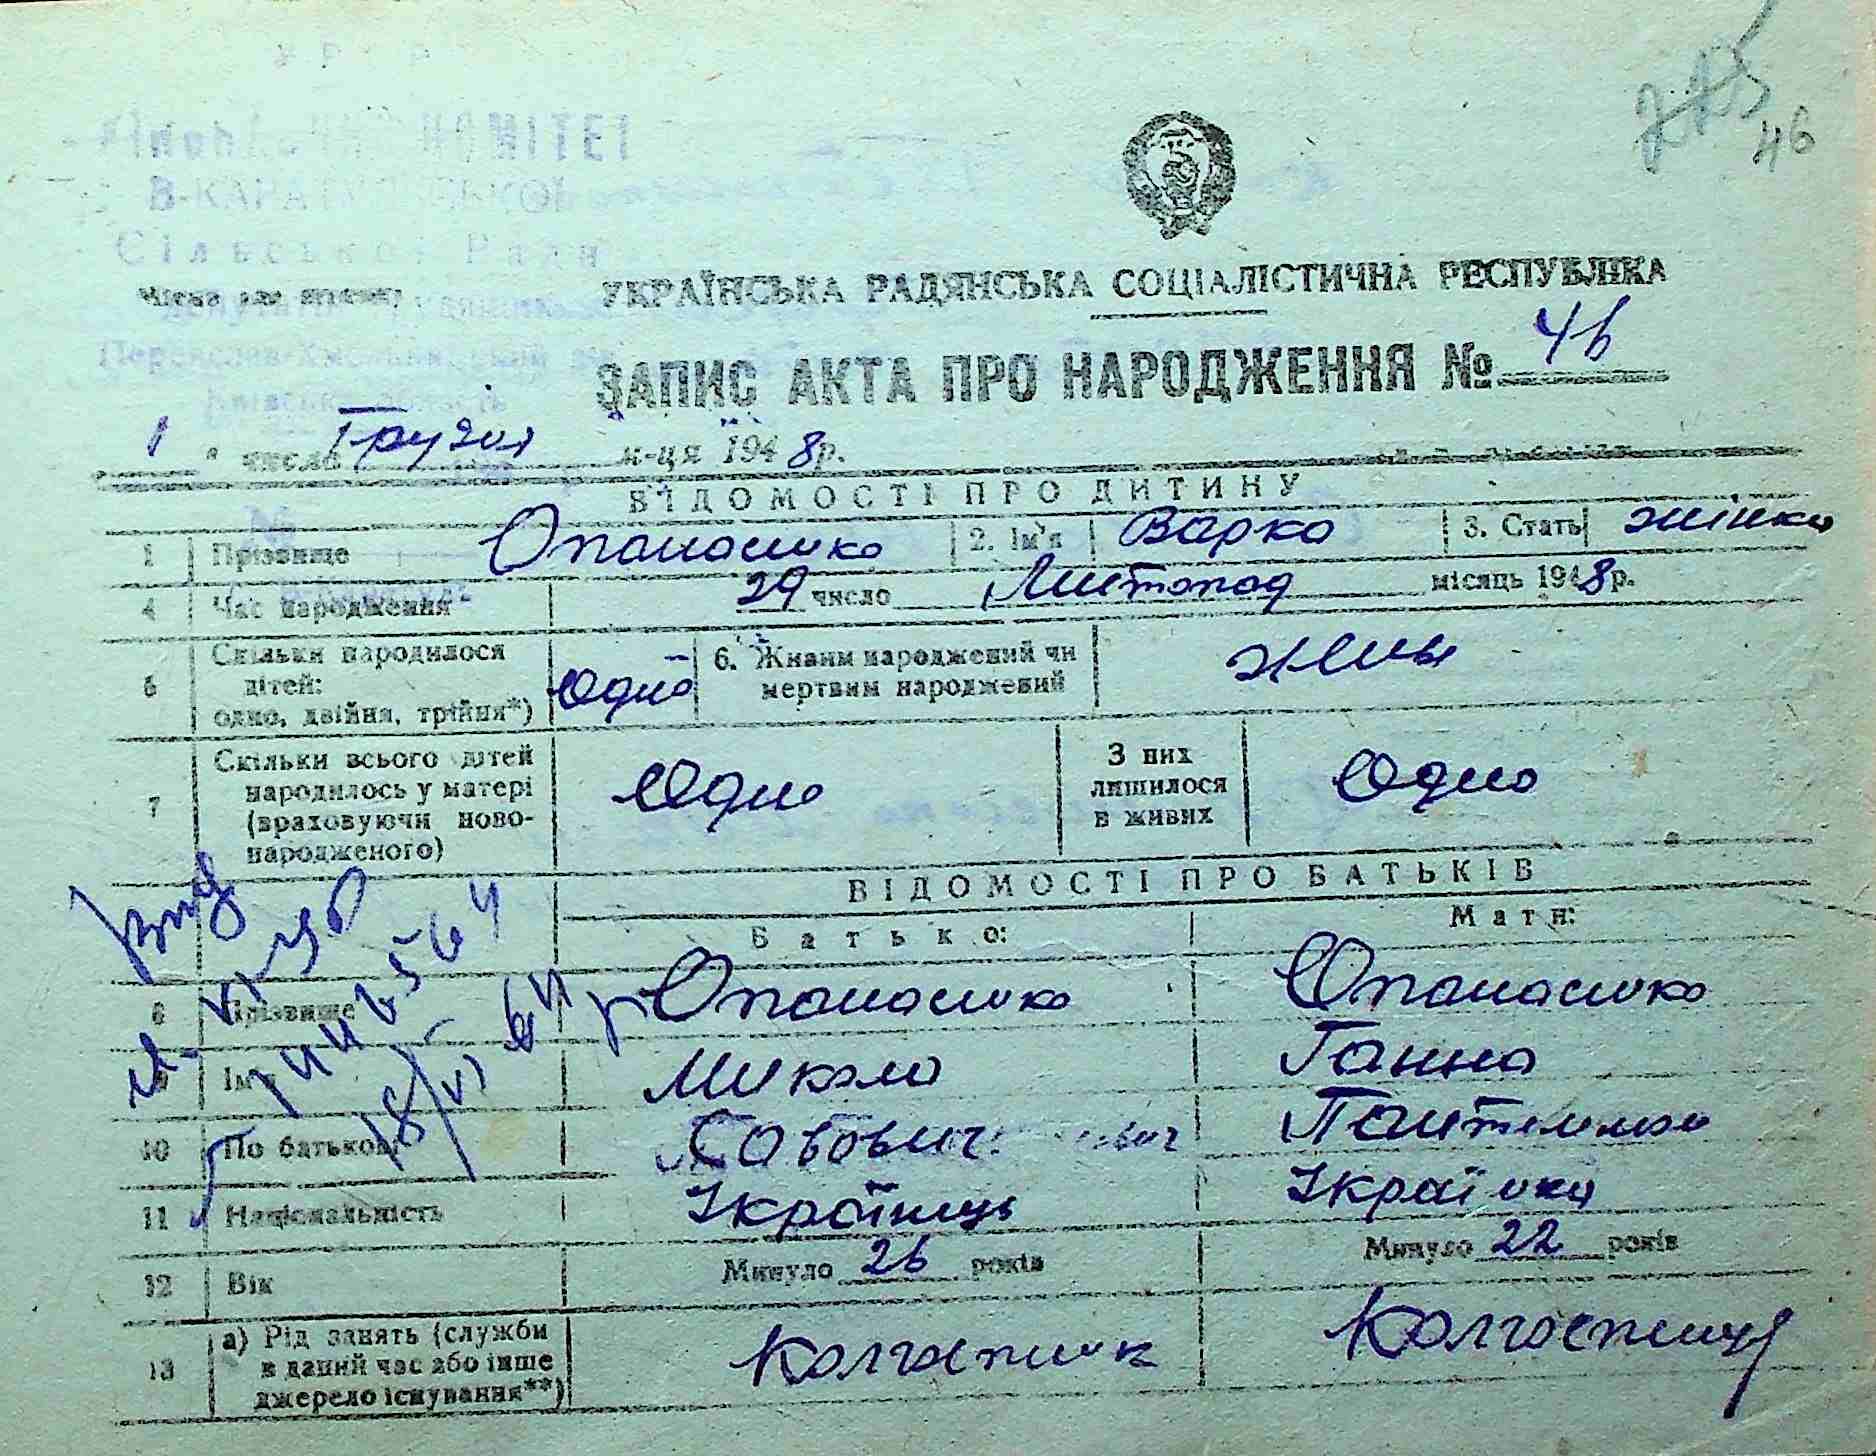 46
КОМІТЕТ
Сільської Ради
Місце для штампу
УКРАЇНСЬКА РАДЯНСЬКА СОЦІАЛІСТИЧНА РЕСПУБЛІКА
ЗАПИС АКТА ПРО НАРОДЖЕННЯ № 46
1 " число Грудня м-ця 1948 р.
ВІДОМОСТІ ПРО ДИТИНУ
1 Прізвище Опанасенко 2. Ім'я Варка 3. Стать жінка
4 Час народження 29 число Листопад місяць 1948 р.
5 Скільки народилося дітей: одно, двійня, трійня*) Одно 6. Живим народжений чи мертвим народжений живы
7 Скільки всього дітей народилось у матері (враховуючи новонародженого) Одно З них лишилося в живих Одно
ВІДОМОСТІ ПРО БАТЬКІВ
Батько: Мати:
8 Прізвище Опанасенко Опанасенко
9 Ім'я Микола Ганна
10 По батькові Савович Пантелимон
11 Національність Українець Українка
12 Вік Минуло 26 років Минуло 22 років
13 а) Рід занять (служби в даний час або інше джерело існування**) Колгоспник Колгоспниця